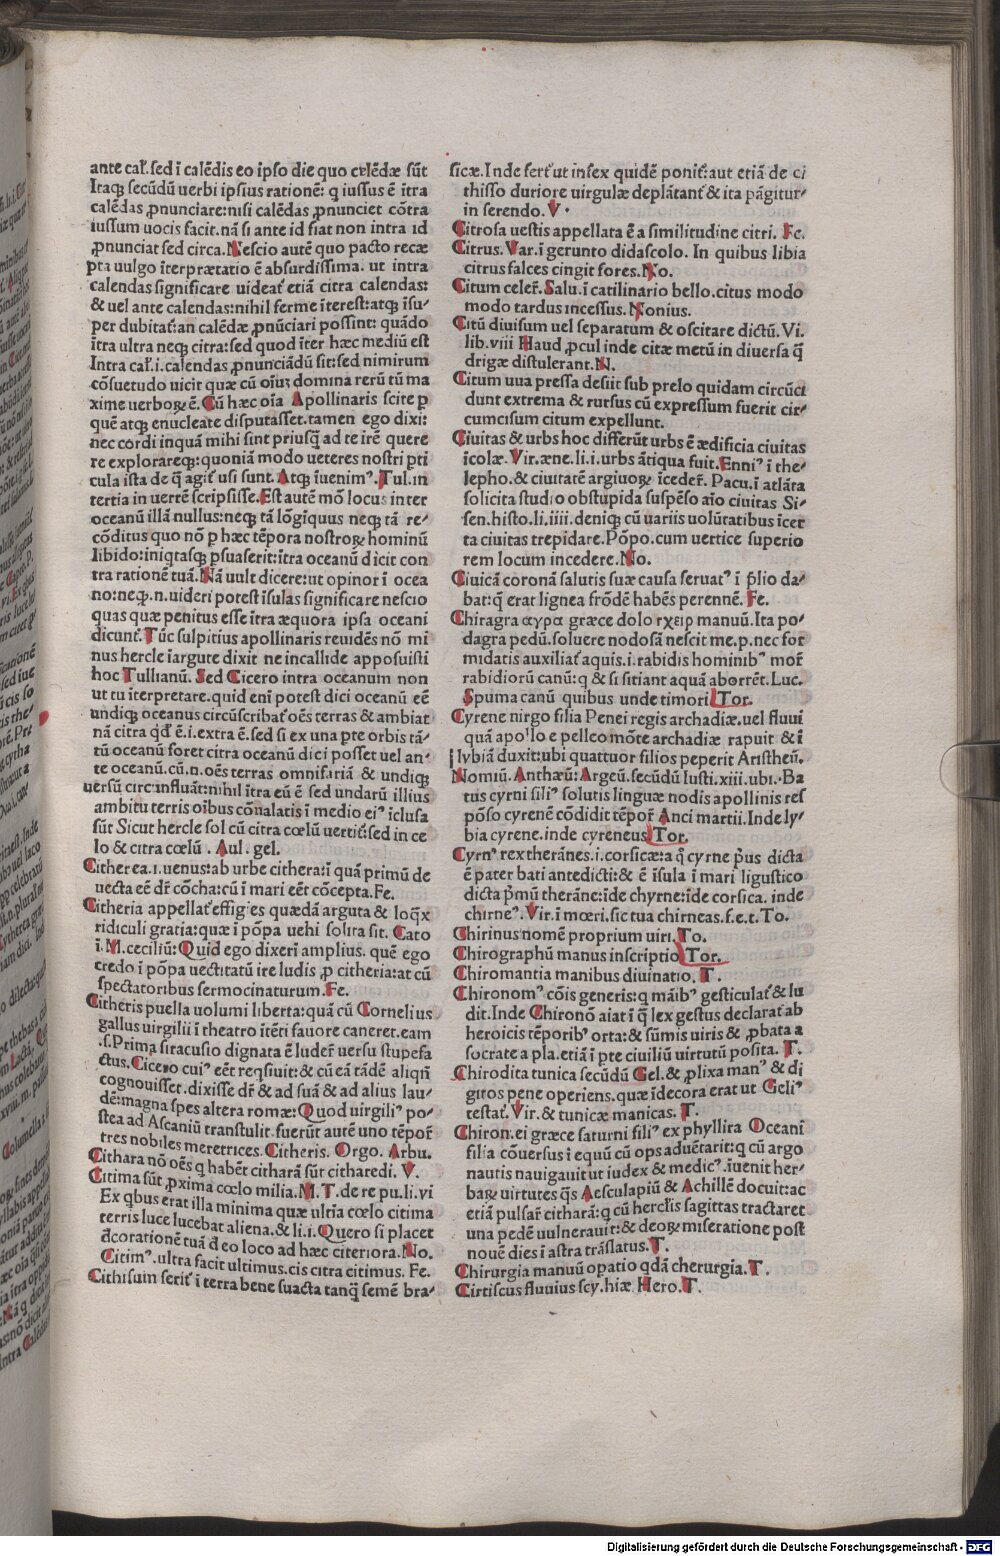 ante cal̃. sed ī calēdis eo ipso die quo celēdæ sūt
Itaqꝫ secūdū uerbi ipsius rationē: q iussus ē ītra
calēdas ꝓnunciare: nisi calēdas ꝓnunciet cōtra
iussum uocis facit. nā si ante id fiat non intra id
ꝓnunciat sed circa. Nescio autē quo pacto recæ
pta uulgo īterprætatio ē absurdissima. ut intra
calendas significare uideat̃ etiā citra calendas:
& uel ante calendas: nihil ferme īterest: atqꝫ īsu-
per dubitat̃: an calēdæ ꝓnūciari possint: quādo
ītra ultra neqꝫ citra: sed quod iter hæc mediū est
Intra cal̃. i. calendas ꝓnunciādū sit: sed nimirum
cōsuetudo uicit quæ cū oīuꝫ domina rerū tū ma
xime uerboꝝ ē. Cū hæc oīa Apollinaris scite p
quē atqꝫ enucleate disputasset. tamen ego dixi:
nec cordi inquā mihi sint priusq̄ ad te irē quere
re explorareqꝫ: quoniā modo ueteres nostri pti
cula ista de q̄ agit̃ usi sunt. Atqꝫ īuenimꝰ. Tul. in
tertia in uerrē scripsisse. Est autē mō locus inter
oceanū illā nullus: neqꝫ tā lōgīquus neqꝫ tā re-
cōditus quo nō p hæc tēpora nostroꝝ hominū
libido: iniqtasqꝫ psuaserit: ītra oceanū dicit con
tra rationē tuā. Nā uult dicere: ut opinor ī ocea
no: neqꝫ. n. uideri potest īsulas significare nescio
quas quæ penitus esse ītra æquora ipsa oceani
dicunt̃. Tūc sulpitius apollinaris reuidēs nō mi
nus hercle īargute dixit ne incallide apposuisti
hoc Tullianū. Sed Cicero intra oceanum non
ut tu īterpretare. quid enī potest dici oceanū eē
undiqꝫ oceanus circūscribat̃ oēs terras & ambiat
nā citra qđ ē. i. extra ē. sed si ex una pte orbis tā-
tū oceanū foret citra oceanū dici posset uel an-
te oceanū. cū. n. oēs terras omnifariā & undiqꝫ
uersū circūnfluāt: nihil ītra eū ē sed undarū illius
ambitu terris oībus cōnalatis ī medio eiꝰ īclusa
sūt Sicut hercle sol cū citra cœlū uertit̃: sed in ce
lo & citra cœlū . Aul. gel.
Citherea. ı. uenus: ab urbe cithera: ī quā primū de
uecta eē dr̃ cōcha: cū ī mari eēt cōcepta. Fe.
Citheria appellat̃ effigies quædā arguta & loq̄x
ridiculi gratia: quæ ī pōpa uehi solita sit. Cato
ī. M. ceciliū: Quid ego dixeri amplius. quē ego
credo ī pōpa uectitatū ire ludis ꝓ citheria: at cū
spectatoribus sermocinaturum. Fe.
Citheris puella uolumi liberta: quā cū Cornelius
gallus uirgilii ī theatro ītēti fauore caneret. eam
.s. Prima siracusio dignata ē luder̃ uersu stupefa
ctus. Cicero cuiꝰ eēt reqsiuit: & cū eā tādē aliqñ
cognouisset. dixisse dr̃ & ad suā & ad alius lau-
dē: magna spes altera romæ: Quod uirgiliꝰ po-
stea ad Ascaniū transtulit. fuerūt autē uno tēpor̃
tres nobiles meretrices. Citheris. Orgo. Arbu.
Cithara nō oēs q habēt citharā sūt citharedi. V.
Citima sūt ꝓxima cœlo milia. M. T. de re pu. li. vi
Ex qbus erat illa minima quæ ultīa cœlo citima
terris luce lucebat aliena. & li. i. Quero si placet
đcorationē tuā đ eo loco ad hæc citeriora. No.
Citimꝰ. ultra facit ultimus. cis citra citimus. Fe.
Cithisum serit̃ ī terra bene suacta tanq̄ semē bra-
sicæ. Inde fert̃ ut insex quidē ponit̃: aut etiā de ci
thisso duriore uirgulæ deplātant̃ & ita pāgitur-
in serendo. V.
Citrosa uestis appellata ē a similitudine citri. Fe.
Citrus. Var. ī gerunto didascolo. In quibus libia
citrus falces cingit fores. No.
Citum celer̃. Salu. ī catilinario bello. citus modo
modo tardus incessus. Nonius.
Citū diuisum uel separatum & oscitare dictū. Vi.
lib. viii Haud ꝓcul inde citæ metū in diuersa q̄
drigæ distulerant. N.
Citum uua pressa desiit sub prelo quidam circūci
dunt extrema & rursus cū expressum fuerit cir-
cumcisum citum expellunt.
Ciuitas & urbs hoc differūt urbs ē ædificia ciuitas
īcolæ. Vir. æne. li. i. urbs ātiqua fuit. Enniꝰ ī the-
lepho. & ciuitatē argiuoꝝ īceder̃. Pacu. ī atlāta
solicita studio obstupida suspēso aīo ciuitas Si-
sen. histo. li. iiii. deniqꝫ cū uariis uolūtatibus īcer
ta ciuitas trepidare. Pōpo. cum uertice superio
rem locum incedere. No.
Ciuicā coronā salutis suæ causa seruatꝰ ī p̄lio da-
bat: q̄ erat lignea frōdē habēs perennē. Fe.
Chiragra αγρα græce dolor χειρ manuū. Ita po-
dagra pedū. soluere nodosā nescit me. p. nec for
midatis auxiliat̃ aquis. i. rabidis hominibꝰ mor̃
rabidiorū canū: q & si sitiant aquā aborrēt. Luc.
Spuma canū quibus unde timori Tor.
Cyrene nirgo filia Penei regis archadiæ. uel fluui
quā apollo e pelleo mōte archadiæ rapuit & ī
lybiā duxit: ubi quattuor filios peperit Aristheū.
Nomiū. Anthæū: Argeū. secūdū Iusti. xiii. ubi. Ba
tus cyrni filiꝰ solutis linguæ nodis apollinis res
pōso cyrenē cōdidit tēpor̃ Anci martii. Inde ly-
bia cyrene. inde cyreneus Tor.
Cyrnꝰ rex therānes. i. corsicæ: a q̄ cyrne p̄us dicta
ē pater bati antedicti: & ē īsula ī mari ligustico
dicta p̄mū therāne: īde chyrne: īde corsica. inde
chirneꝰ. Vir. ī mœri. sic tua chirneas. f. e. t. To.
Chirinus nomē proprium uiri. To.
Chirographū manus inscriptio Tor.
Chiromantia manibus diuinatio. T.
Chironomꝰ cōis generis: q māibꝰ gesticulat̃ & lu
dit. Inde Chironō aiat ī q̄ lex gestus declarat̃ ab
heroicis tēporibꝰ orta: & sūmis uiris & ꝓbata a
socrate a pla. etiā ī pte ciuiliū uirtutū posita. T.
Chirodita tunica secūdū Gel. & ꝓlixa manꝰ & di
gitos pene operiens. quæ īdecora erat ut Geliꝰ
testat̃. Vir. & tunicæ manicas. T.
Chiron. ei græce saturni filiꝰ ex phyllira Oceani
filia cōuersus ī equū cū ops aduētarit: q cū argo
nautis nauigauit ut iudex & medicꝰ. īuenit her-
baꝝ uirtutes q̄s Aesculapiū & Achillē docuit: ac
etiā pulsar̃ citharā: q cū herclīs sagittas tractaret
una pedē uulnerauit: & deoꝝ miseratione post
nouē dies ī astra trāslatus. T.
Chirurgia manuū opatio qdā cherurgia. T.
Cirtiscus fluuius scy.hiæ Hero. T.
Digitalisierung gefördert durch die Deutsche Forschungsgemeinschaft - DFG